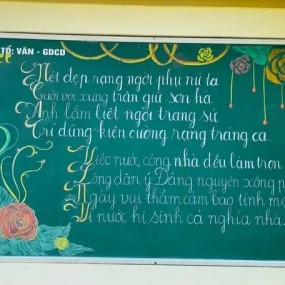 TỔ: VĂN - GDCD
Nét đẹp rạng ngời phụ nữ ta
Cưỡi voi xung trận giữ sơn hà
Anh lắm liệt ngời trang sử
Trí dũng kiên cường rạng tráng ca.
Việc nước công nhà đều làm trọn
Lòng dân ý Đảng nguyện xông
Ngày vui thắm cảm bao tình mẹ
Vì nước hi sinh cả nghĩa nhà